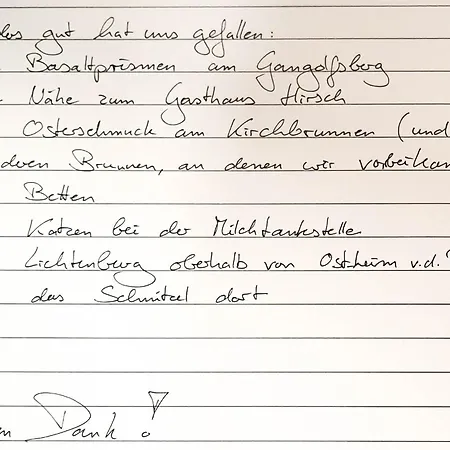 gut hat uns gefallen:
Basaltprismen am Gangolfsberg
Nähe zum Gasthaus Hirsch
Osterschmuck am Kirchbrunnen (und
deren Brunnen, an denen wir vorbeikam
Betten
Katzen bei der Milchtankstelle
Lichtenburg oberhalb von Ostheim v.d.
das Schnitzel dort
en Dank!